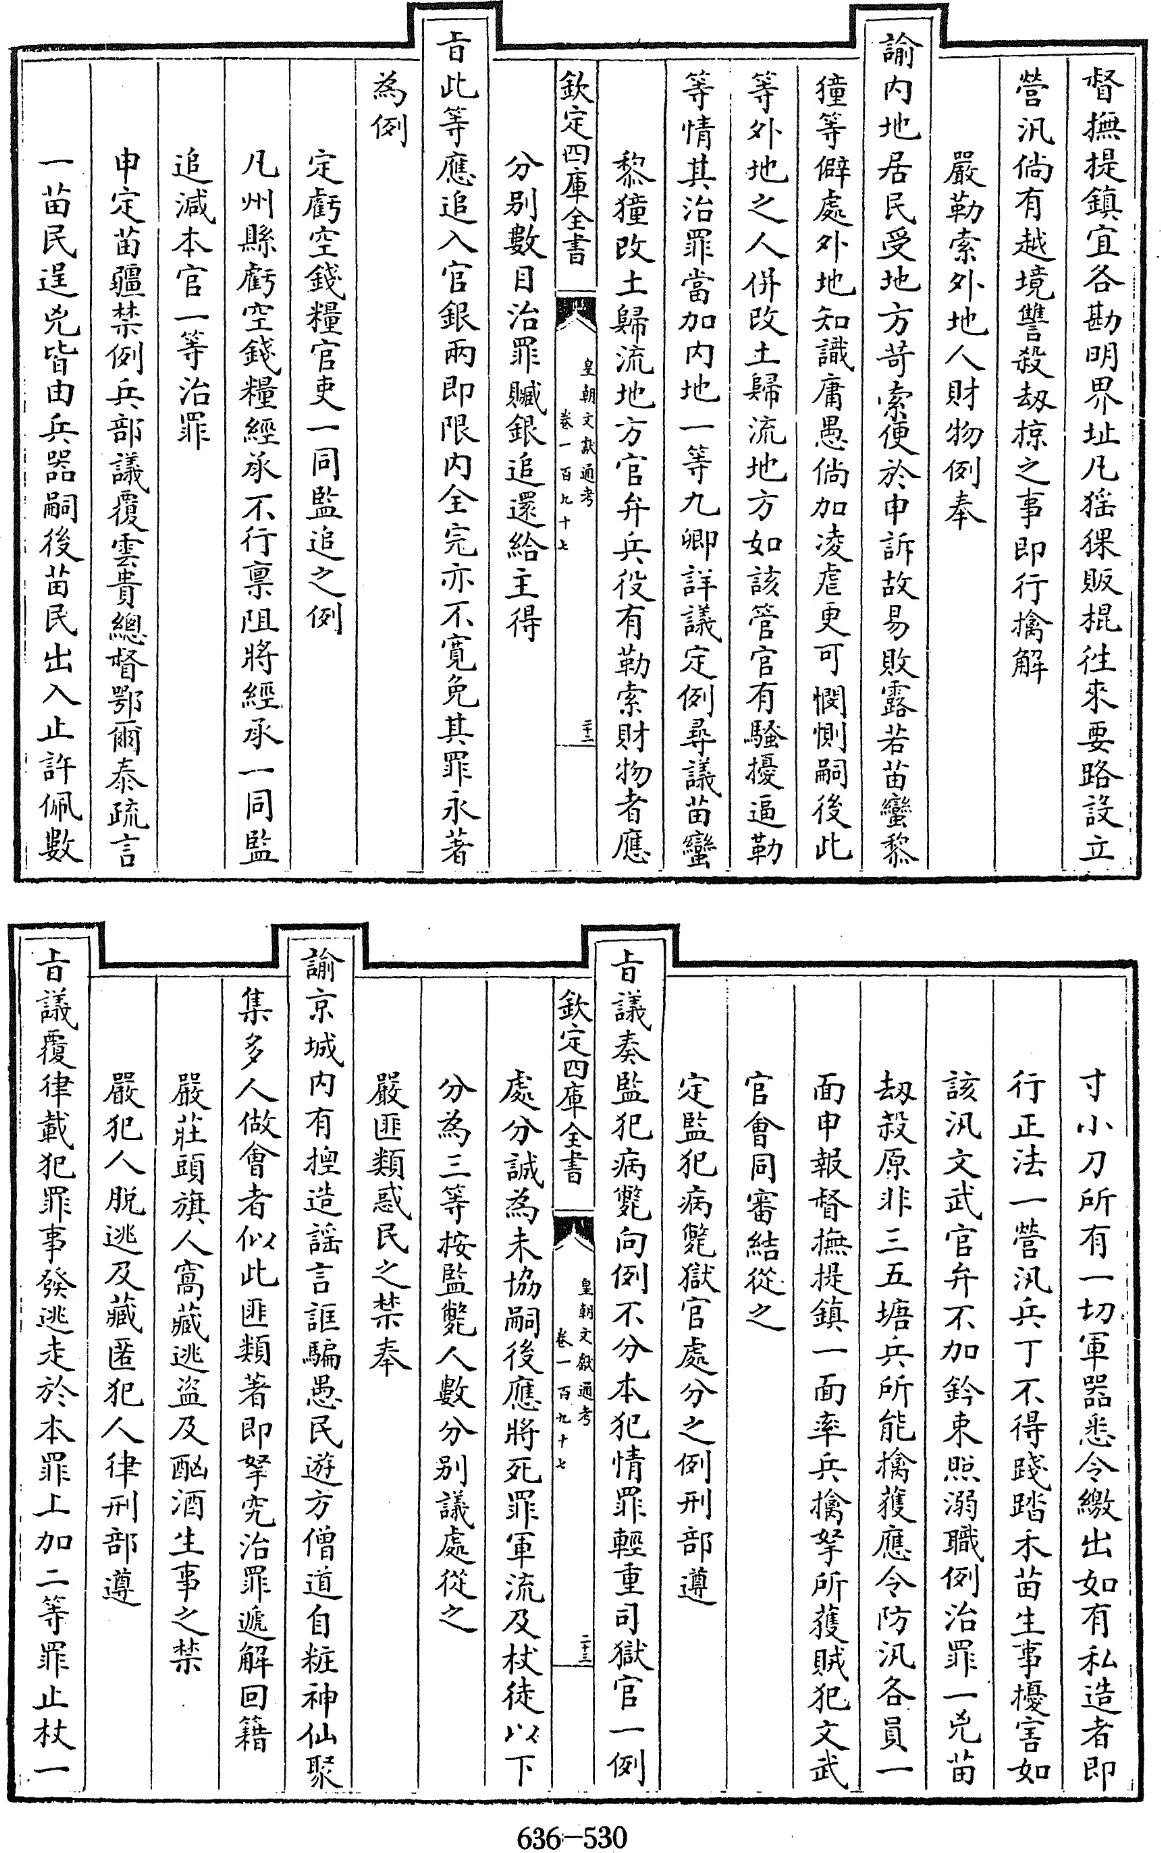 督撫提鎮宜各勘明界址凡猺猓販棍徃來要路設立
營汛倘有越境讐殺刼掠之事即行擒解
嚴勒索外地人財物例奉
諭内地居民受地方苛索便於申訴故易敗露若苗蠻黎
獞等僻處外地知識庸愚倘加凌虐更可憫惻嗣後此
等外地之人併改土歸流地方如該管官有騷擾逼勒
等情其治罪當加内地一等九卿詳議定例尋議苗蠻
黎獞改土歸流地方官弁兵役有勒索財物者應
欽定四庫全書
皇朝文獻通考
卷一百九十七
二十二
分别數目治罪贓銀追還給主得
㫖此等應追入官銀兩即限内全完亦不寛免其罪永著
為例
定虧空錢糧官吏一同監追之例
凡州縣虧空錢糧經承不行禀阻將經承一同監
追減本官一等治罪
申定苗疆禁例兵部議覆雲貴總督鄂爾泰疏言
一苗民逞兇皆由兵器嗣後苗民出入止許佩數
寸小刀所有一切軍器悉令繳出如有私造者即
行正法一營汛兵丁不得踐踏禾苗生事擾害如
該汛文武官弁不加鈐束照溺職例治罪一兇苗
刼殺原非三五塘兵所能擒獲應令防汛各員一
面申報督撫提鎮一面率兵擒拏所獲賊犯文武
官㑹同審結從之
定監犯病斃獄官處分之例刑部遵
㫖議奏監犯病斃向例不分本犯情罪輕重司獄官一例
欽定四庫全書
皇朝文獻通考
卷一百九十七
二十三
處分誠為未協嗣後應將死罪軍流及杖徒以下
分為三等按監斃人數分别議處從之
嚴匪類惑民之禁奉
諭京城内有揑造謡言誆騙愚民遊方僧道自粧神仙聚
集多人做㑹者似此匪類著即拏究治罪遞解回籍
嚴莊頭旗人窩藏逃盗及酗酒生事之禁
嚴犯人脱逃及藏匿犯人律刑部遵
㫖議覆律載犯罪事發逃走於本罪上加二等罪止杖一
636-530